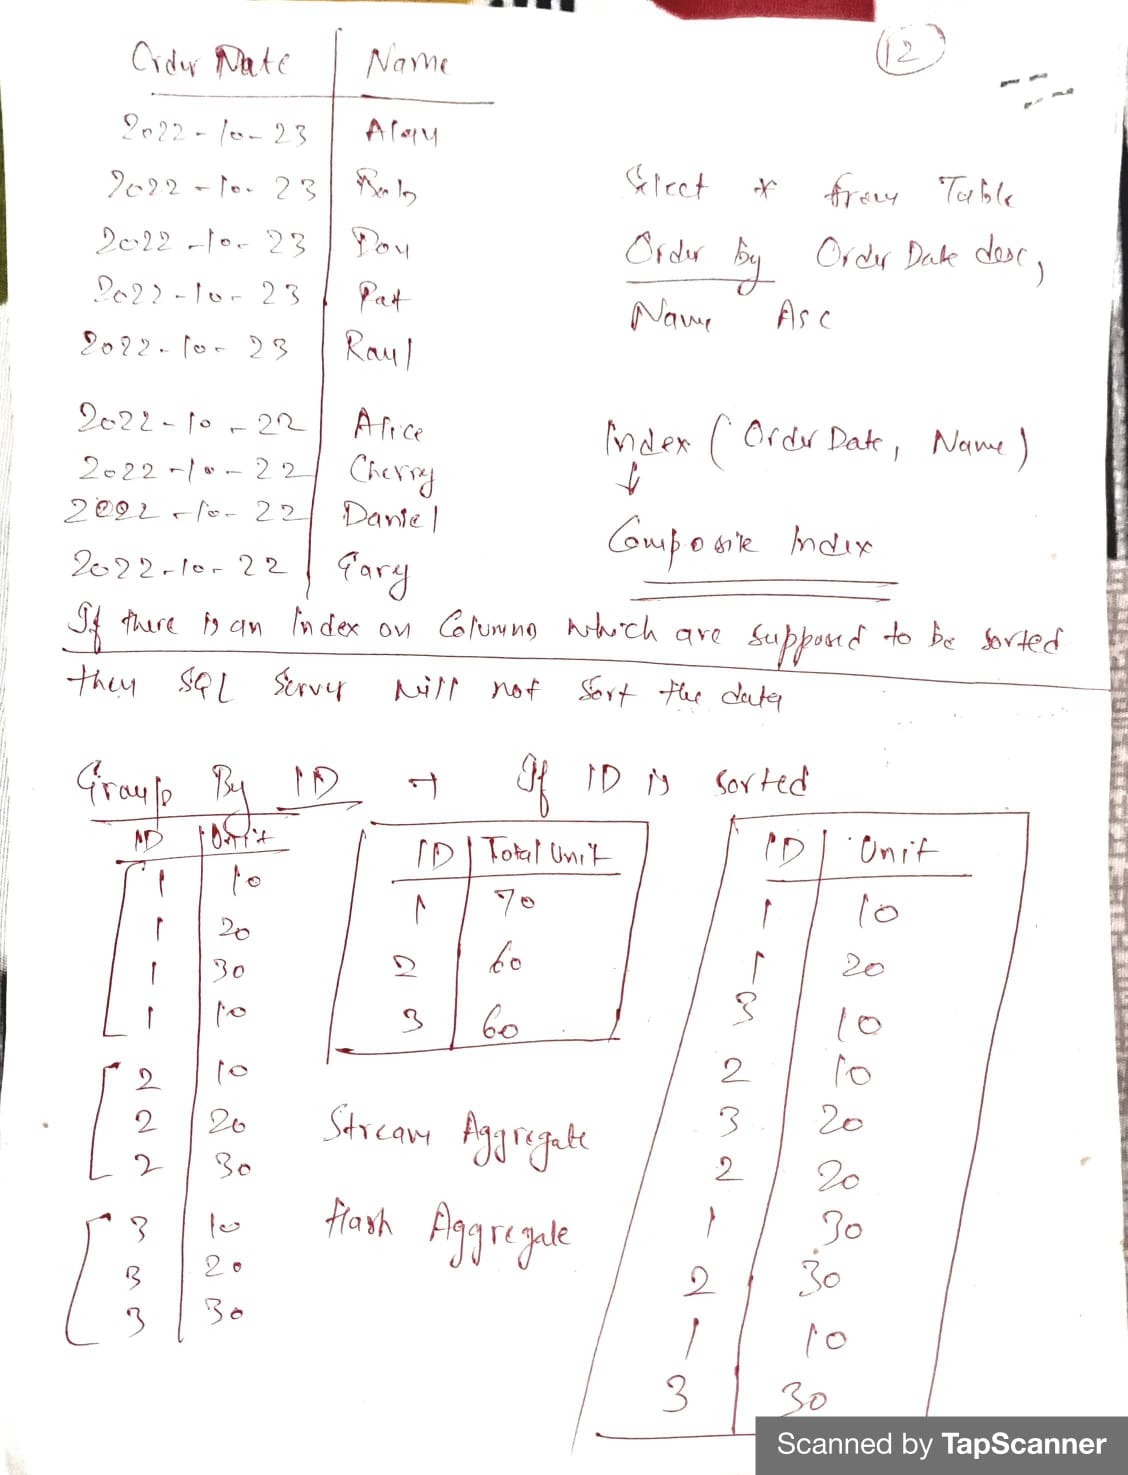 12
Order Date | Name
2022-10-23 | Alany
2022-10-23 | Bob
2022-10-23 | Don
2022-10-23 | Pat
2022-10-23 | Raul
2022-10-22 | Alice
2022-10-22 | Cherry
2022-10-22 | Daniel
2022-10-22 | Gary
Select * from Table
Order by Order Date desc,
Name Asc
Index (Order Date, Name)
↓
Composite Index
If there is an Index on Columns which are supposed to be sorted
then SQL Server will not sort the data
Group By ID → If ID is sorted
ID | Unit
1 | 10
1 | 20
1 | 30
1 | 10
2 | 10
2 | 20
2 | 30
3 | 10
3 | 20
3 | 30
ID | Total Unit
1 | 70
2 | 60
3 | 60
Stream Aggregate
Hash Aggregate
ID | Unit
1 | 10
1 | 20
3 | 10
2 | 10
3 | 20
2 | 20
1 | 30
2 | 30
1 | 10
3 | 30
Scanned by TapScanner